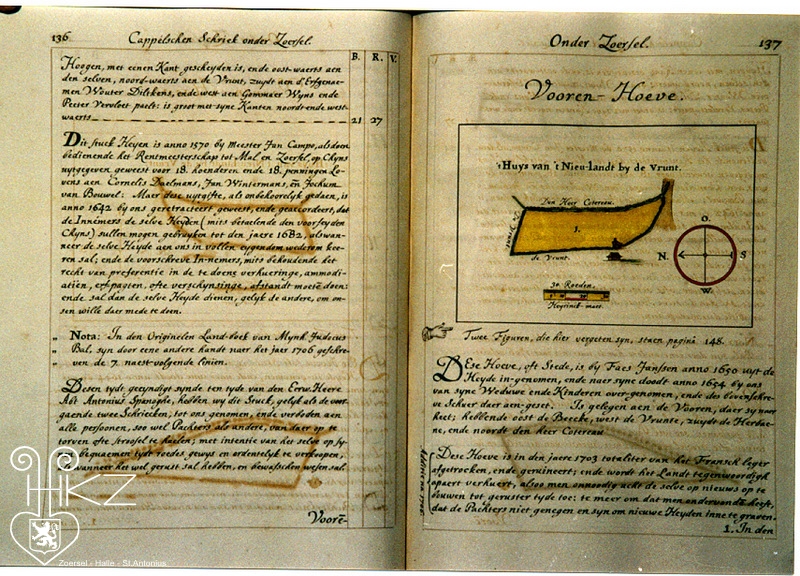 136 Cappelschen Schriek onder Zoersel.
B. R. V.
Hoogen, met eenen Kant gescheyden is, ende oost-waerts aen
den selven, noord-waerts aen de Vrunt, zuydt aen d'Erfgenae-
men Wouter Dilckens, ende west aen Gommaer Wyns ende
Peeter Vervloet paelt: is groot met syne Kanten noordt ende west-
waerts 21 27
Dit stuck Heyen is anno 1570 by Meester Jan Campo, als doen
bedienende het Rentmeesterschap tot Mal en Zoersel, op Chyns
uytgegeven geweest voor 18. hoenderen ende 18. penningen Lo-
vens aen Cornelis Daelmans, Jan Wintermans, en Jochum
van Bouwel: Maer dese uytgifte, als onbehoorlyk gedaen, is
anno 1642 by ons geretracteert geweest, ende geaccordeert, dat
de Innemers de selve Heyden (mits betaelende den voorseyden
Chyns) sullen mogen gebruyken tot den jaere 1682, alswan-
neer de selve Heyde aen ons in vollen eygendom wederom kee-
ren sal; ende de voorschreve In-nemers, mits behoudende het
recht van preferentie in de te doene verhueringe, ammodi-
atien, erfpagten, ofte verchynsinge, afstandt moeten doen:
ende sal dan de selve Heyde dienen, gelyk de andere, om on-
sen wille daer mede te doen.
„ Nota: In den Originelen Land-boek van Mynh. Judocus
„ Bal, syn door eene andere handt naer het jaer 1706 geschre-
„ ven de 7. naest-volgende linien.
Desen tydt geeyndigt synde ten tyde van den Eerw. Heere
Abt Antonius Spanoghe, hebben wy dit Stuck, gelyk als de voor-
gaende twee Schriecken, tot ons genomen, ende verboden aen
alle persoonen, soo wel Pachters als andere, van daer op te
torven ofte stroysel te haelen; met intentie van het selve op sy-
bequaemen tydt roedes gewys en ordentelyk te verkoopen,
wanneer het wel gerust sal hebben, en bewasschen wesen sal.
Voorē-
HKZ
Zoersel - Halle - St.Antonius
Onder Zoersel. 137
Vooren-Hoeve.
't Huys van 't Nieu-landt by de Vrunt.
Den Heer Cotereau.
de Vrunt.
1.
de Vrunt.
O.
N. S
W.
30. Roeden.
Heyrinck-mate.
Twee Figuren, die hier vergeten syn, staen pagina 148.
Dese Hoeve, oft Stede, is by Faes Janssen anno 1630 uyt de
Heyde in-genomen, ende naer syne doodt anno 1654 by ons
van syne Weduwe ende Kinderen over-genomen, ende des bovenschre-
ve Schuer daer aen-geset. Is gelegen aen de Vooren, daer sy naer
heet; hebbende oost de Beecke, west de Vrunte, zuydt de Herbae-
ne, ende noordt den heer Cotereau
Dese Hoeve is in den jaere 1703 totaliter van het Fransch leger
afgetrocken, ende geruineert; ende wordt het Landt tegenwoordigh
apaert verhuert, alsoo men onnoodig acht de selve op nieuws op te
bouwen tot geruster tyde toe: te meer om dat men ondervonden heeft,
dat de Pachters niet genegen en syn om nieuwe Heyden inne te graven.
1. In den